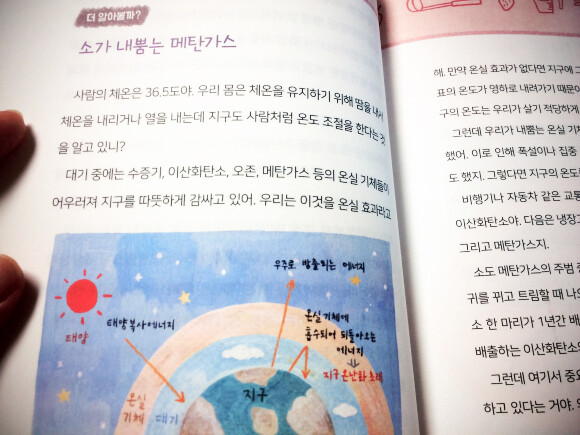 더 알아볼까?
소가 내뿜는 메탄가스
사람의 체온은 36.5도야. 우리 몸은 체온을 유지하기 위해 땀을 내서
체온을 내리거나 열을 내는데 지구도 사람처럼 온도 조절을 한다는 것
을 알고 있니?
대기 중에는 수증기, 이산화탄소, 오존, 메탄가스 등의 온실 기체들이
어우러져 지구를 따뜻하게 감싸고 있어. 우리는 이것을 온실 효과라고
우주로 방출되는 에너지
태양
태양복사에너지
온실 기체에
흡수되어 되돌아오는
에너지
지구온난화 초래
지구
온실
기체
대기
해. 만약 온실 효과가 없다면 지구에
표의 온도가 영하로 내려가기 때문이
구의 온도는 우리가 살기 적당하게
그런데 우리가 내뿜는 온실 기
했어. 이로 인해 폭설이나 집중
도 했지. 그렇다면 지구의 온도
비행기나 자동차 같은 교통
이산화탄소야. 다음은 냉장고
그리고 메탄가스지.
소도 메탄가스의 주범
귀를 뀌고 트림할 때 나오
소 한 마리가 1년간 배
배출하는 이산화탄소
그런데 여기서 중요
하고 있다는 거야.